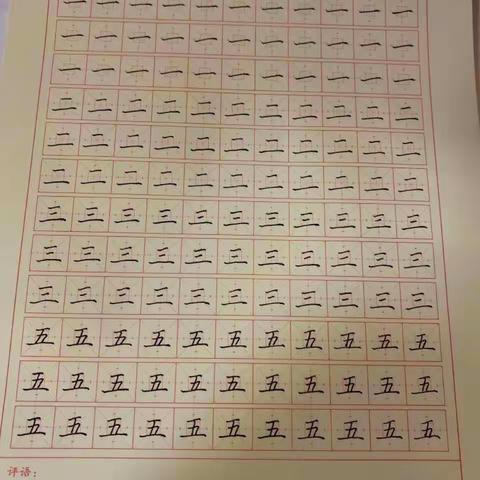 一一一一一一一一一一一
一一一一一一一一一一一
一一一一一一一一一一一
二二二二二二二二二二二
二二二二二二二二二二二
二二二二二二二二二二二
三三三三三三三三三三三
三三三三三三三三三三三
三三三三三三三三三三三
五五五五五五五五五五五
五五五五五五五五五五五
五五五五五五五五五五五
评语：